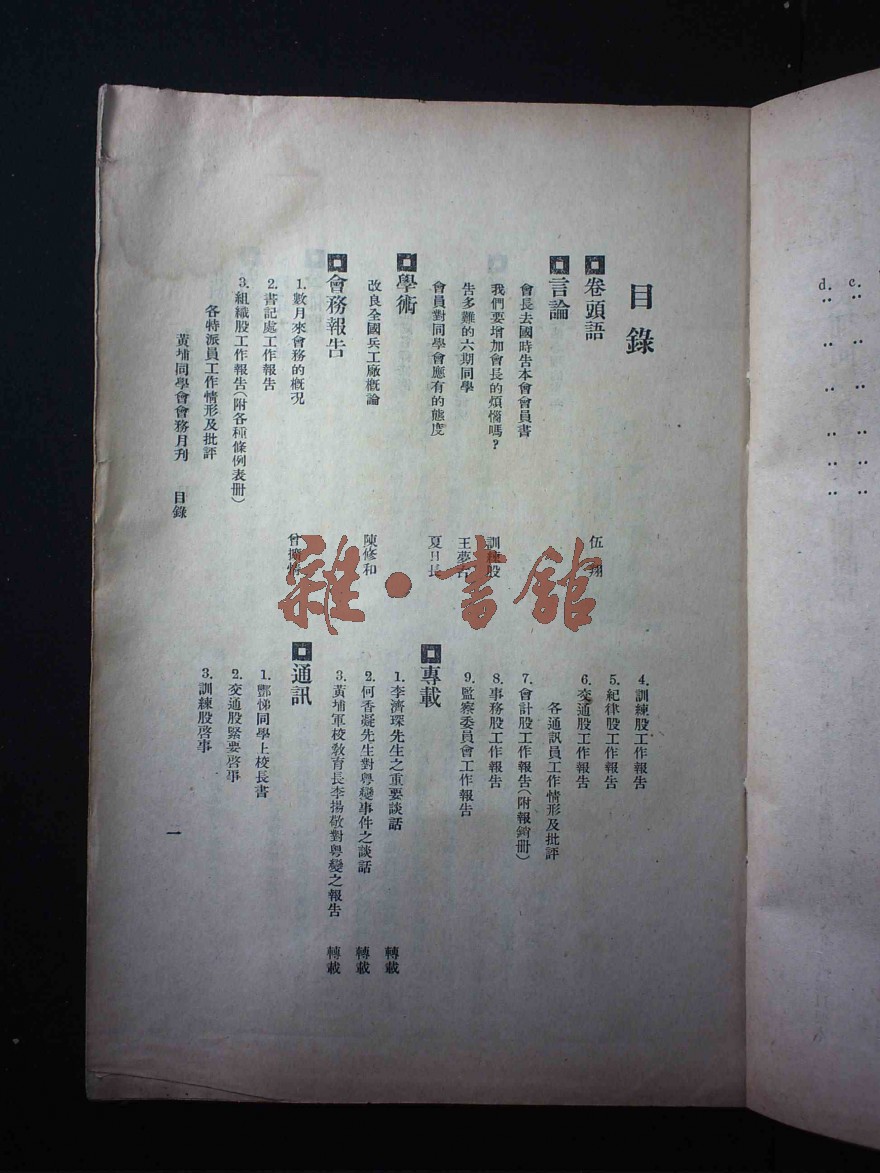 目錄
卷頭語 伍翔
言論
會長去國時告本會會員書
我們要增加會長的煩惱嗎? 訓練股
告多難的六期同學 王夢
會員對同學會應有的態度 夏日長
學術
改良全國兵工廠概論 陳修和
會務報告
1.數月來會務的概況 曾擴情
2.書記處工作報告
3.組織股工作報告(附各種條例表冊)
各特派員工作情形及批評
4.訓練股工作報告
5.紀律股工作報告
6.交通股工作報告
各通訊員工作情形及批評
7.會計股工作報告(附報銷冊)
8.事務股工作報告
9.監察委員會工作報告
專載
1.李濟琛先生之重要談話 轉載
2.何香凝先生對粵變事件之談話 轉載
3.黃埔軍校教育長李揚敬對粵變之報告 轉載
通訊
1.酆悌同學上校長書
2.交通股緊要啓事
3.訓練股啓事
黃埔同學會會務月刊 目錄
一
雜·書館
c. ,, ,, ,, ,, ,,
d. ,, ,, ,, ,, ,,